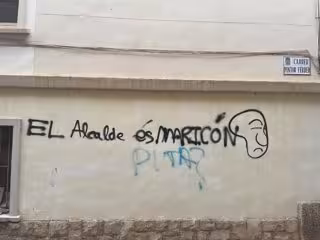 CARRER
PINTOR FERRER
EL Alcalde és MARICÓN
PITA?